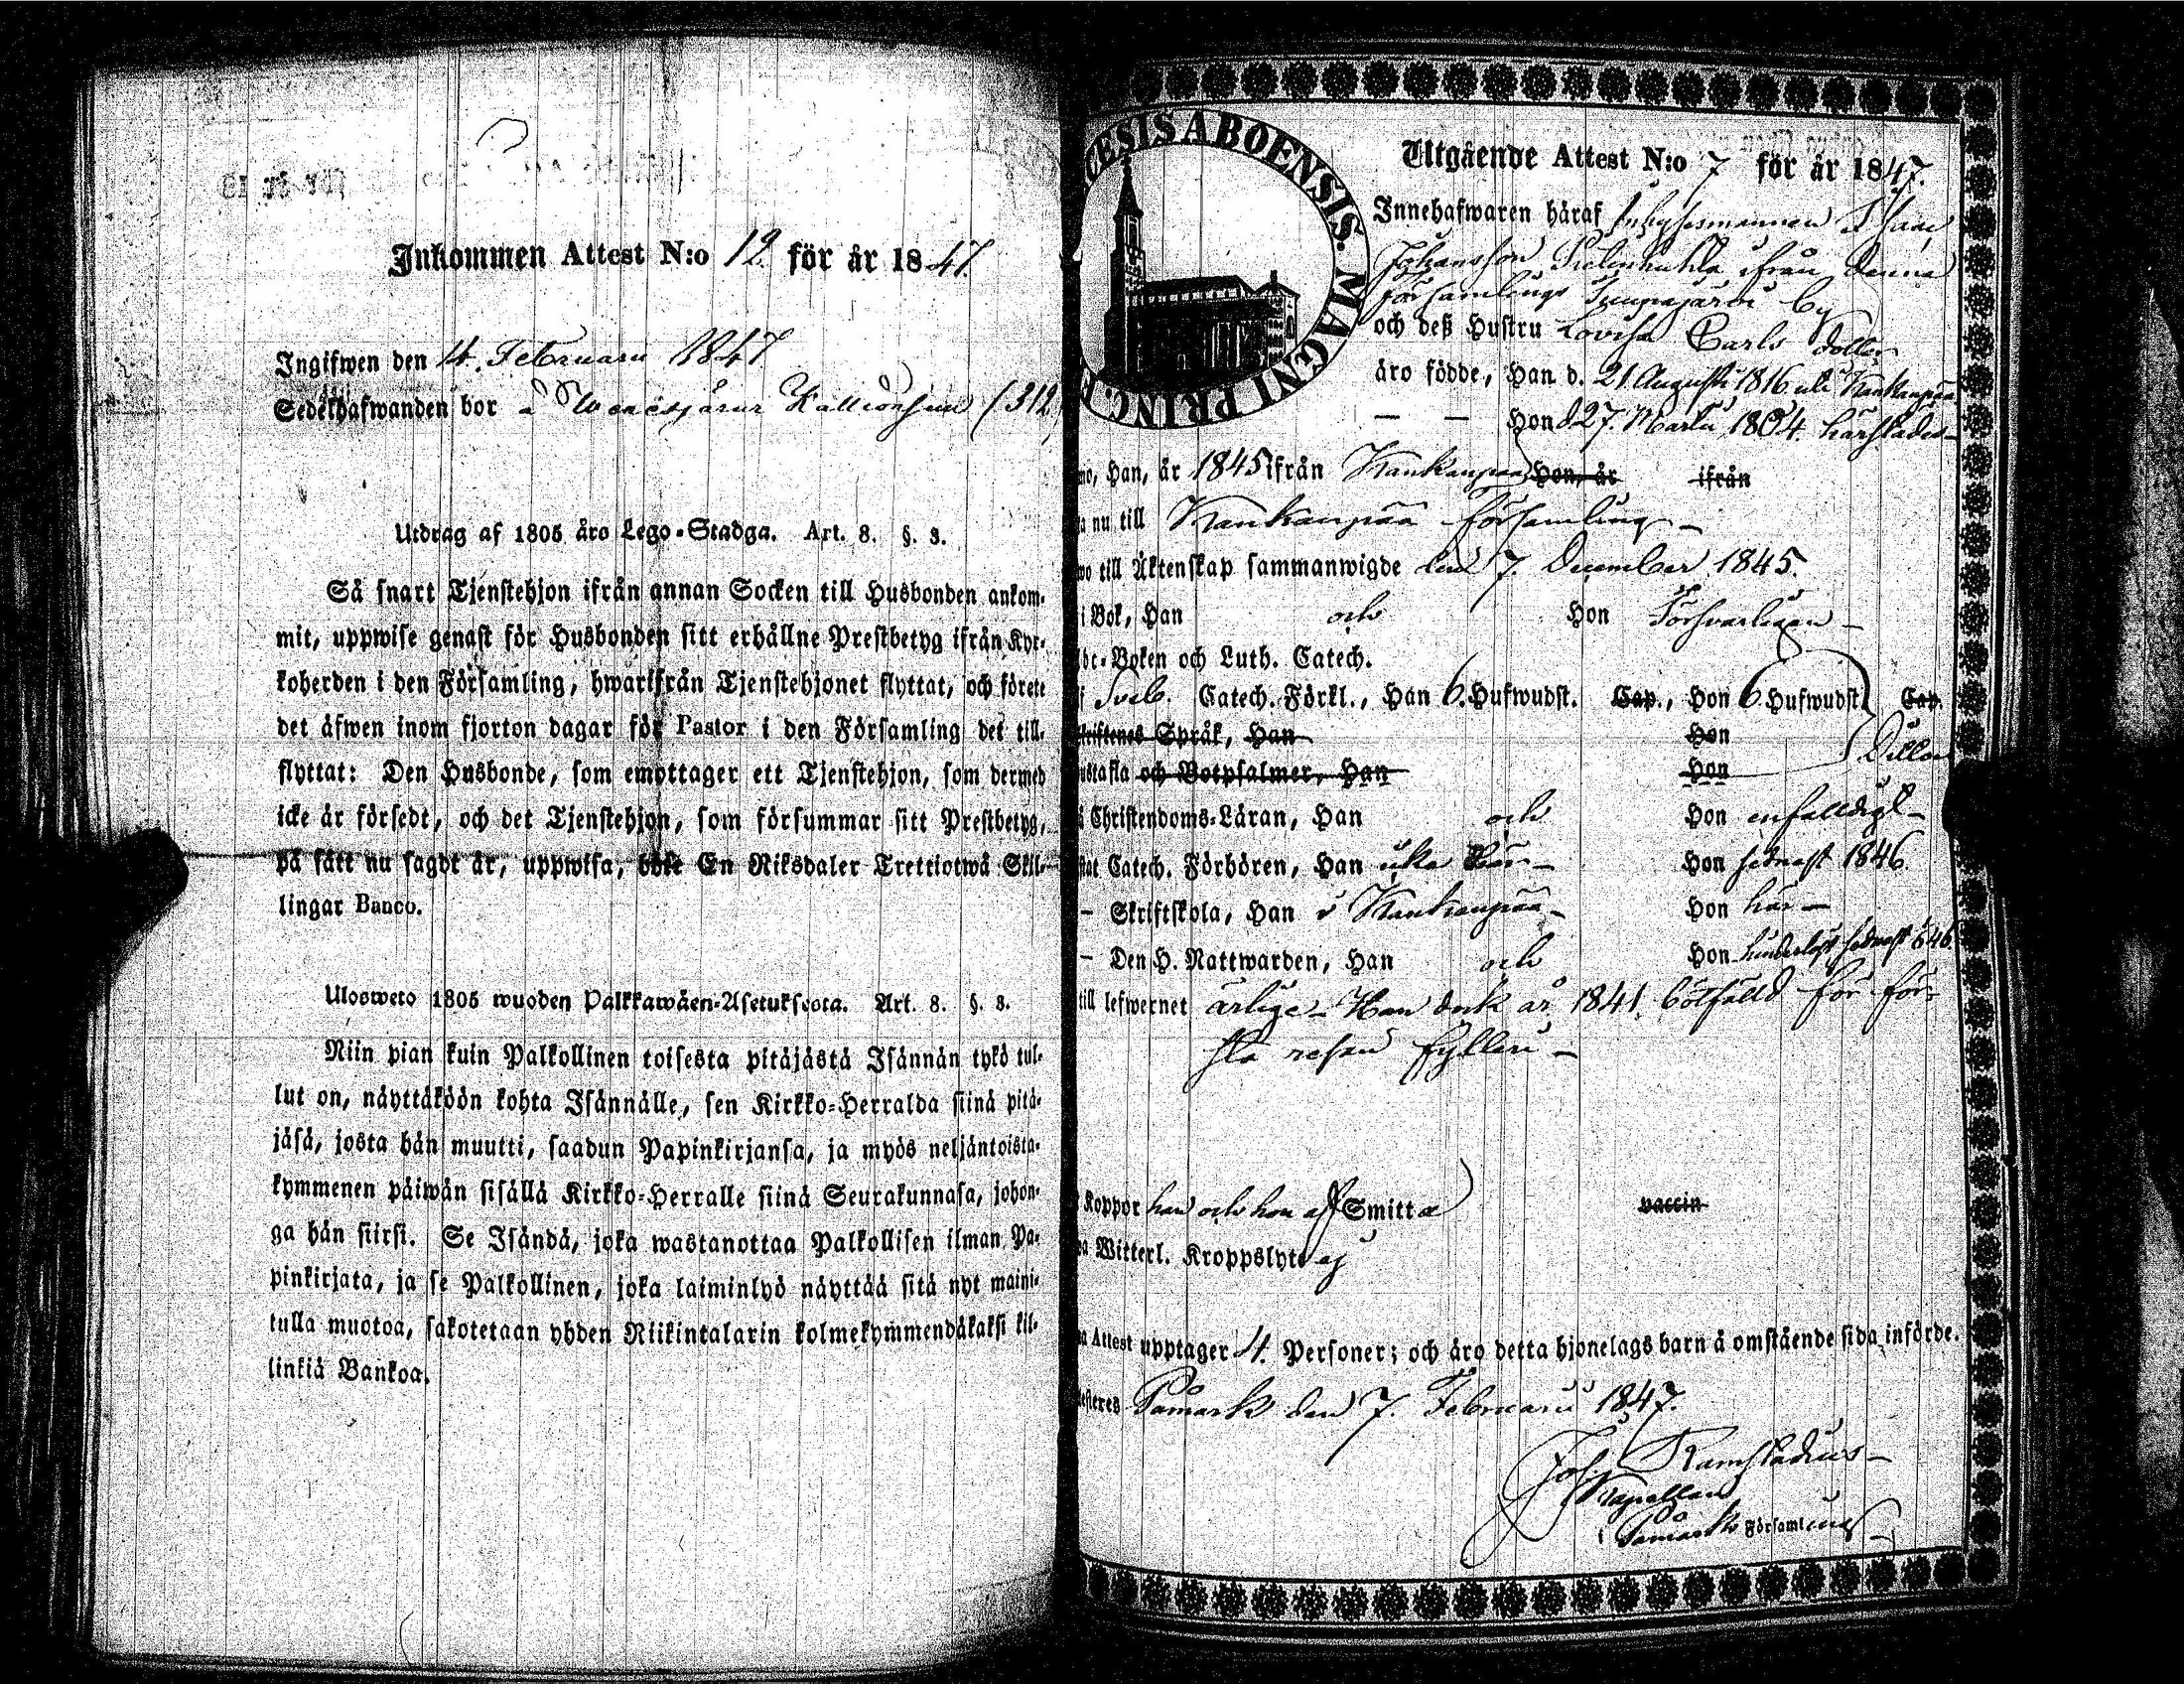 Inkommen Attest N:o 12. för år 1847.
Ingifwen den 4. Februarii 1847
Sedelhafwanden bor å (312)
Utdrag af 1805 års Lego-Stadga. Art. 8. §. 3.
Så snart Tjenstehjon ifrån annan Socken till Husbonden ankom-
mit, uppwise genast för Husbonden sitt erhållne Prestbetyg ifrån Kyr-
koherden i den Församling, hwarifrån Tjenstehjonet flyttat, och förete
det äfwen inom fjorton dagar för Pastor i den Församling det till-
flyttat: Den Husbonde, som emottager ett Tjenstehjon, som dermed
icke är försedt, och det Tjenstehjon, som försummar sitt Prestbetyg,
på sätt nu sagdt är, uppwisa, böte En Riksdaler Trettiotwå Skil-
lingar Banco.
Ulosweto 1805 wuoden Palkkawäen-Asetuksesta. Art. 8. §. 3.
Niin pian kuin Palkollinen toisesta pitäjästä Isännän tykö tul-
lut on, näyttäköön kohta Isännälle, sen Kirkko-Herralda siinä pitä-
jäsä, josta hän muutti, saadun Papinkirjansa, ja myös neljäntoista-
kymmenen päiwän sisällä Kirkko-Herralle siinä Seurakunnasa, johon-
ga hän siirsi. Se Isändä, joka wastanottaa Palkollisen ilman Pa-
pinkirjata, ja se Palkollinen, joka laiminlyö näyttää sitä nyt maini-
tulla muotoa, sakotetaan yhden Riikintalarin kolmekymmendäkaksi kil-
linkiä Bankoa.
CESIS ABOENSIS. MAGNI PRINC. F
Utgående Attest N:o 7 för år 1847.
Innehafwaren häraf Inhysesmannen
Johansson ifrån denna
församlings by
och deß Hustru Lovisa Carls dotter
äro födde, Han d. 21. Augusti 1816 uti Kankanpää
— — Hon d 27. Martii 1804. härstädes –
Han, år 1845 ifrån Kankanpää Hon, år ifrån
nu till Kankanpää församling –
till Äktenskap sammanwigde den 7. December 1845.
i Bok, Han och Hon Försvarligen –
Boken och Luth. Catech.
Sveb. Catech. Förkl., Han 6. Hufwudst. Cap., Hon 6. Hufwudst. Cap.
Språk, Han Hon
och Botpsalmer, Han Hon
Christendoms-Läran, Han och Hon enfaldigt –
Catech. Förhören, Han icke här – Hon sednast 1846.
– Skriftskola, Han i Kankanpää – Hon här –
– Den H. Nattwarden, Han och Hon hinderlöst sednast 846
till lefwernet ärlige – Han dock år 1841. bötfälld för för-
sta resan fylleri –
Koppor han och hon af Smitta vaccin
Witterl. Kroppslyte ej
Attest upptager 4. Personer; och äro detta hjonelags barn å omstående sida införde.
Påmark den 7. Februarii 1847.
Joh. Ramstadius –
Kapellan
i Påmarks Församling –